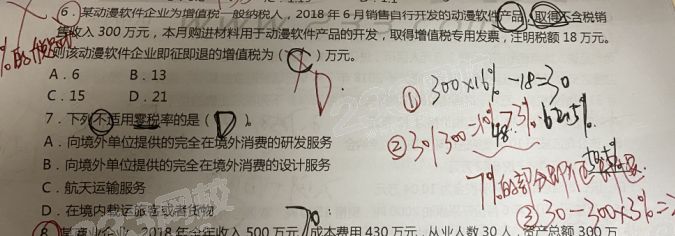 6．某动漫软件企业为增值税一般纳税人，2018年6月销售自行开发的动漫软件产品，取得不含税销
售收入300万元，本月购进材料用于动漫软件产品的开发，取得增值税专用发票，注明税额18万元。
则该动漫软件企业即征即退的增值税为（C）万元。
D
A．6 B．13
C．15 D．21
① 300×16%-18=30
7．下列不适用零税率的是（D）。
② 30/300=10%>3%
A．向境外单位提供的完全在境外消费的研发服务
B．向境外单位提供的完全在境外消费的设计服务
7%的部分即
C．航天运输服务
③ 30-300×3%=
D．在境内载运旅客或者货物
8．某商业企业，2018年全年收入500万元，成本费用430万元，从业人数30人，资产总额300万